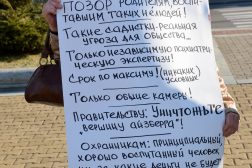 ПОЗОР РОДИТЕЛЯМ, ВОСПИ-
ТАВШИМ ТАКИХ НЕЛЮДЕЙ!
Такие садистки-реальная
угроза для общества
Только независимую психиатри-
ческую экспертизу!
Срок по максиму! (никаких
условных
Только общие камеры!
Правительству: Уничтожьте
"вершину айзберга"!
Охранникам: принципиальный,
хорошо воспитанный человек
ни за какие деньги не будет